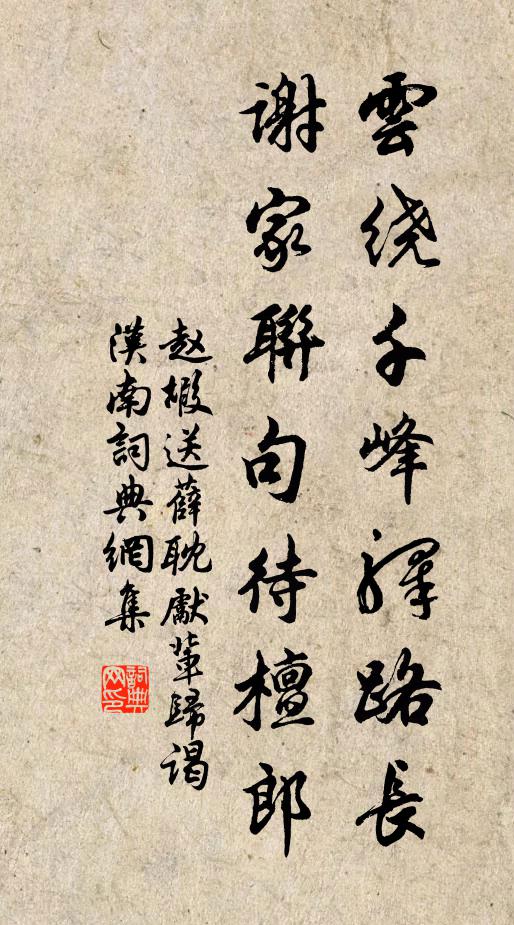 雲绕千峰驛路長
謝家聯句待檀郎
赵椵送薛耽獻輩歸谒
漢南詞典網集
詞典
网印